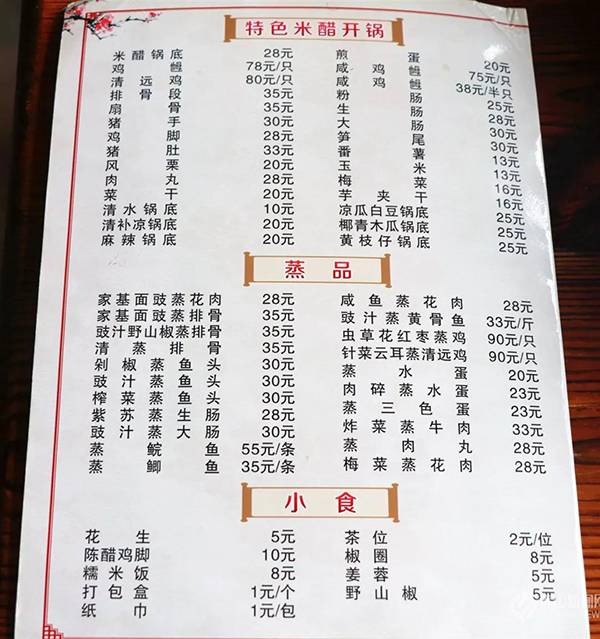 特色米醋开锅
米醋锅底 28元 煎蛋 20元
鸡 78元/只 咸鸡 75元/只
清远鸡 80元/只 咸鸡 38元/半只
排骨段 35元 粉肠 25元
扇骨 35元 生肠 28元
猪手 30元 大肠 30元
鸡脚 28元 笋尾 30元
猪肚 33元 番薯 13元
风栗 20元 玉米 13元
肉丸 28元 梅菜 16元
菜干 20元 芋夹干 16元
清水锅底 10元 凉瓜白豆锅底 25元
清补凉锅底 20元 椰青木瓜锅底 25元
麻辣锅底 20元 黄枝仔锅底 25元
蒸品
家基面豉蒸花肉 28元 咸鱼蒸花肉 28元
家基面豉蒸排骨 35元 豉汁蒸黄骨鱼 33元/斤
豉汁野山椒蒸排骨 35元 虫草花红枣蒸鸡 90元/只
清蒸排骨 35元 针菜云耳蒸清远鸡 90元/只
剁椒蒸鱼头 30元 蒸水蛋 20元
豉汁蒸鱼头 30元 肉碎蒸水蛋 23元
榨菜蒸鱼头 30元 蒸三色蛋 23元
紫苏蒸生肠 28元 炸菜蒸牛肉 33元
豉汁蒸大肠 30元 蒸肉丸 28元
蒸鲩鱼 55元/条 梅菜蒸花肉 28元
蒸鲫鱼 35元/条
小食
花生 5元 茶位 2元/位
陈醋鸡脚 10元 椒圈 8元
糯米饭 8元 姜蓉 5元
打包盒 1元/个 野山椒 5元
纸巾 1元/包